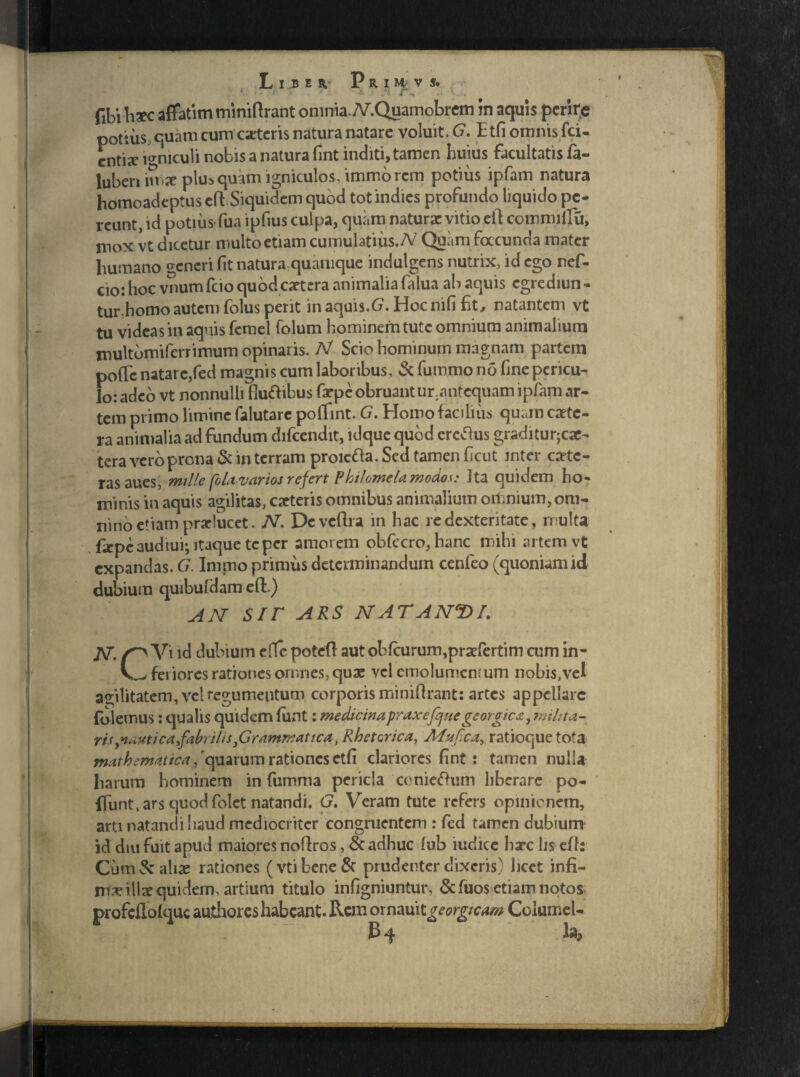 LIBER PRIMVS.
ſibi hæc affatim miniſtrant omnia. N. Quamobrem in aquis perire
potiùs, quàm cum cæteris natura natare voluit. G. Etſi omnis ſci-
entiæ igniculi nobis a natura ſint inditi, tamen huius facultatis ſa-
luberimæ plus quàm igniculos, immò rem potiùs ipſam natura
homo adeptus eſt. Siquidem quòd tot indies profundo liquido pe-
reunt, id potiùs ſua ipſius culpa, quàm naturæ vitio eſt commiſſu,
mox vt dicetur multo etiam cumulatiùs. N Quàm fœcunda mater
humano generi ſit natura, quàmque indulgens nutrix, id ego neſ-
cio: hoc vnum ſcio quòd cætera animalia ſalua ab aquis egrediun-
tur, homo autem ſolus perit in aquis. G. Hoc niſi fit, natantem vt
tu videas in aquis ſemel ſolum hominem tute omnium animalium
multò miſerrimum opinaris. N Scio hominum magnam partem
poſſe natare, ſed magnis cum laboribus, & ſummo nõ ſine pericu-
lo: adeò vt nonnulli fluctibus ſæpè obruantur, antequam ipſam ar-
tem primo limine ſalutare poſſint. G. Homo faciliùs quam cæte-
ra animalia ad fundum diſcendit, idque quòd erectus graditur; cæ-
tera verò prona & in terram proiecta. Sed tamen ſicut inter cæte-
ras aues, mille ſola varios refert Philomela modos: Ita quidem ho-
minis in aquis agilitas, cæteris omnibus animalium omnium, om-
nino etiam prælucet. N. De veſtra in hac re dexteritate, multa
ſæpè audiui; itaque te per amorem obſecro, hanc mihi artem vt
expandas. G. Immo primùs determinandum cenſeo (quoniam id
dubium quibuſdam eſt.)
AN SIT ARS NATANDI.
N. CVi id dubium eſſe poteſt aut obſcurum, præſertim cum in-
feriores rationes omnes, quæ vel emolumentum nobis, vel
agilitatem, vel tegumentum corporis miniſtrant: artes appellare
ſolemus: qualis quidem ſunt: medicina praxeſque georgicæ, milita-
ris, nautica, fabrilis, Grammatica, Rhetorica, Muſica, ratioque tota
mathematica, quarum rationes etſi clariores ſint: tamen nulla
harum hominem in ſumma pericla coniectum liberare po-
ſſunt, ars quod ſolet natandi. G. Veram tute refers opinionem,
arti natandi haud mediocriter congruentem: ſed tamen dubium
id diu fuit apud maiores noſtros, & adhuc ſub iudice hæc lis eſt:
Cùm & aliæ rationes (vti bene & prudenter dixeris) licet infi-
mæ illæ quidem, artium titulo inſigniuntur, & ſuos etiam notos
profeſſoſque authores habeant. Rem ornauit georgicam Columel-
B4 la,